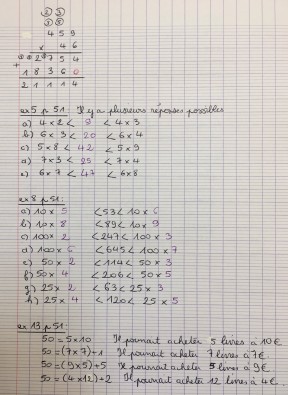 ② ③
③ ⑤
4 5 9
× 4 6
2 7 5 4
+ 1 8 3 6 0
2 1 1 1 4
ex 5 p 51 : Il y a plusieurs réponses possibles
a) 4 × 2 < 9 < 4 × 3
b) 6 × 3 < 20 < 6 × 4
c) 5 × 8 < 42 < 5 × 9
d) 7 × 3 < 25 < 7 × 4
e) 6 × 7 < 47 < 6 × 8
ex 8 p 51 :
a) 10 × 5 < 53 < 10 × 6
b) 10 × 8 < 89 < 10 × 9
c) 100 × 2 < 247 < 100 × 3
d) 100 × 6 < 645 < 100 × 7
e) 50 × 2 < 114 < 50 × 3
f) 50 × 4 < 206 < 50 × 5
g) 25 × 2 < 63 < 25 × 3
h) 25 × 4 < 120 < 25 × 5
ex 13 p 51 :
50 = 5 × 10 Il pourrait acheter 5 livres à 10 €
50 = (7 × 7) + 1 Il pourrait acheter 7 livres à 7 €.
50 = (9 × 5) + 5 Il pourrait acheter 5 livres à 9 €
50 = (4 × 12) + 2 Il pourrait acheter 12 livres à 4 €.